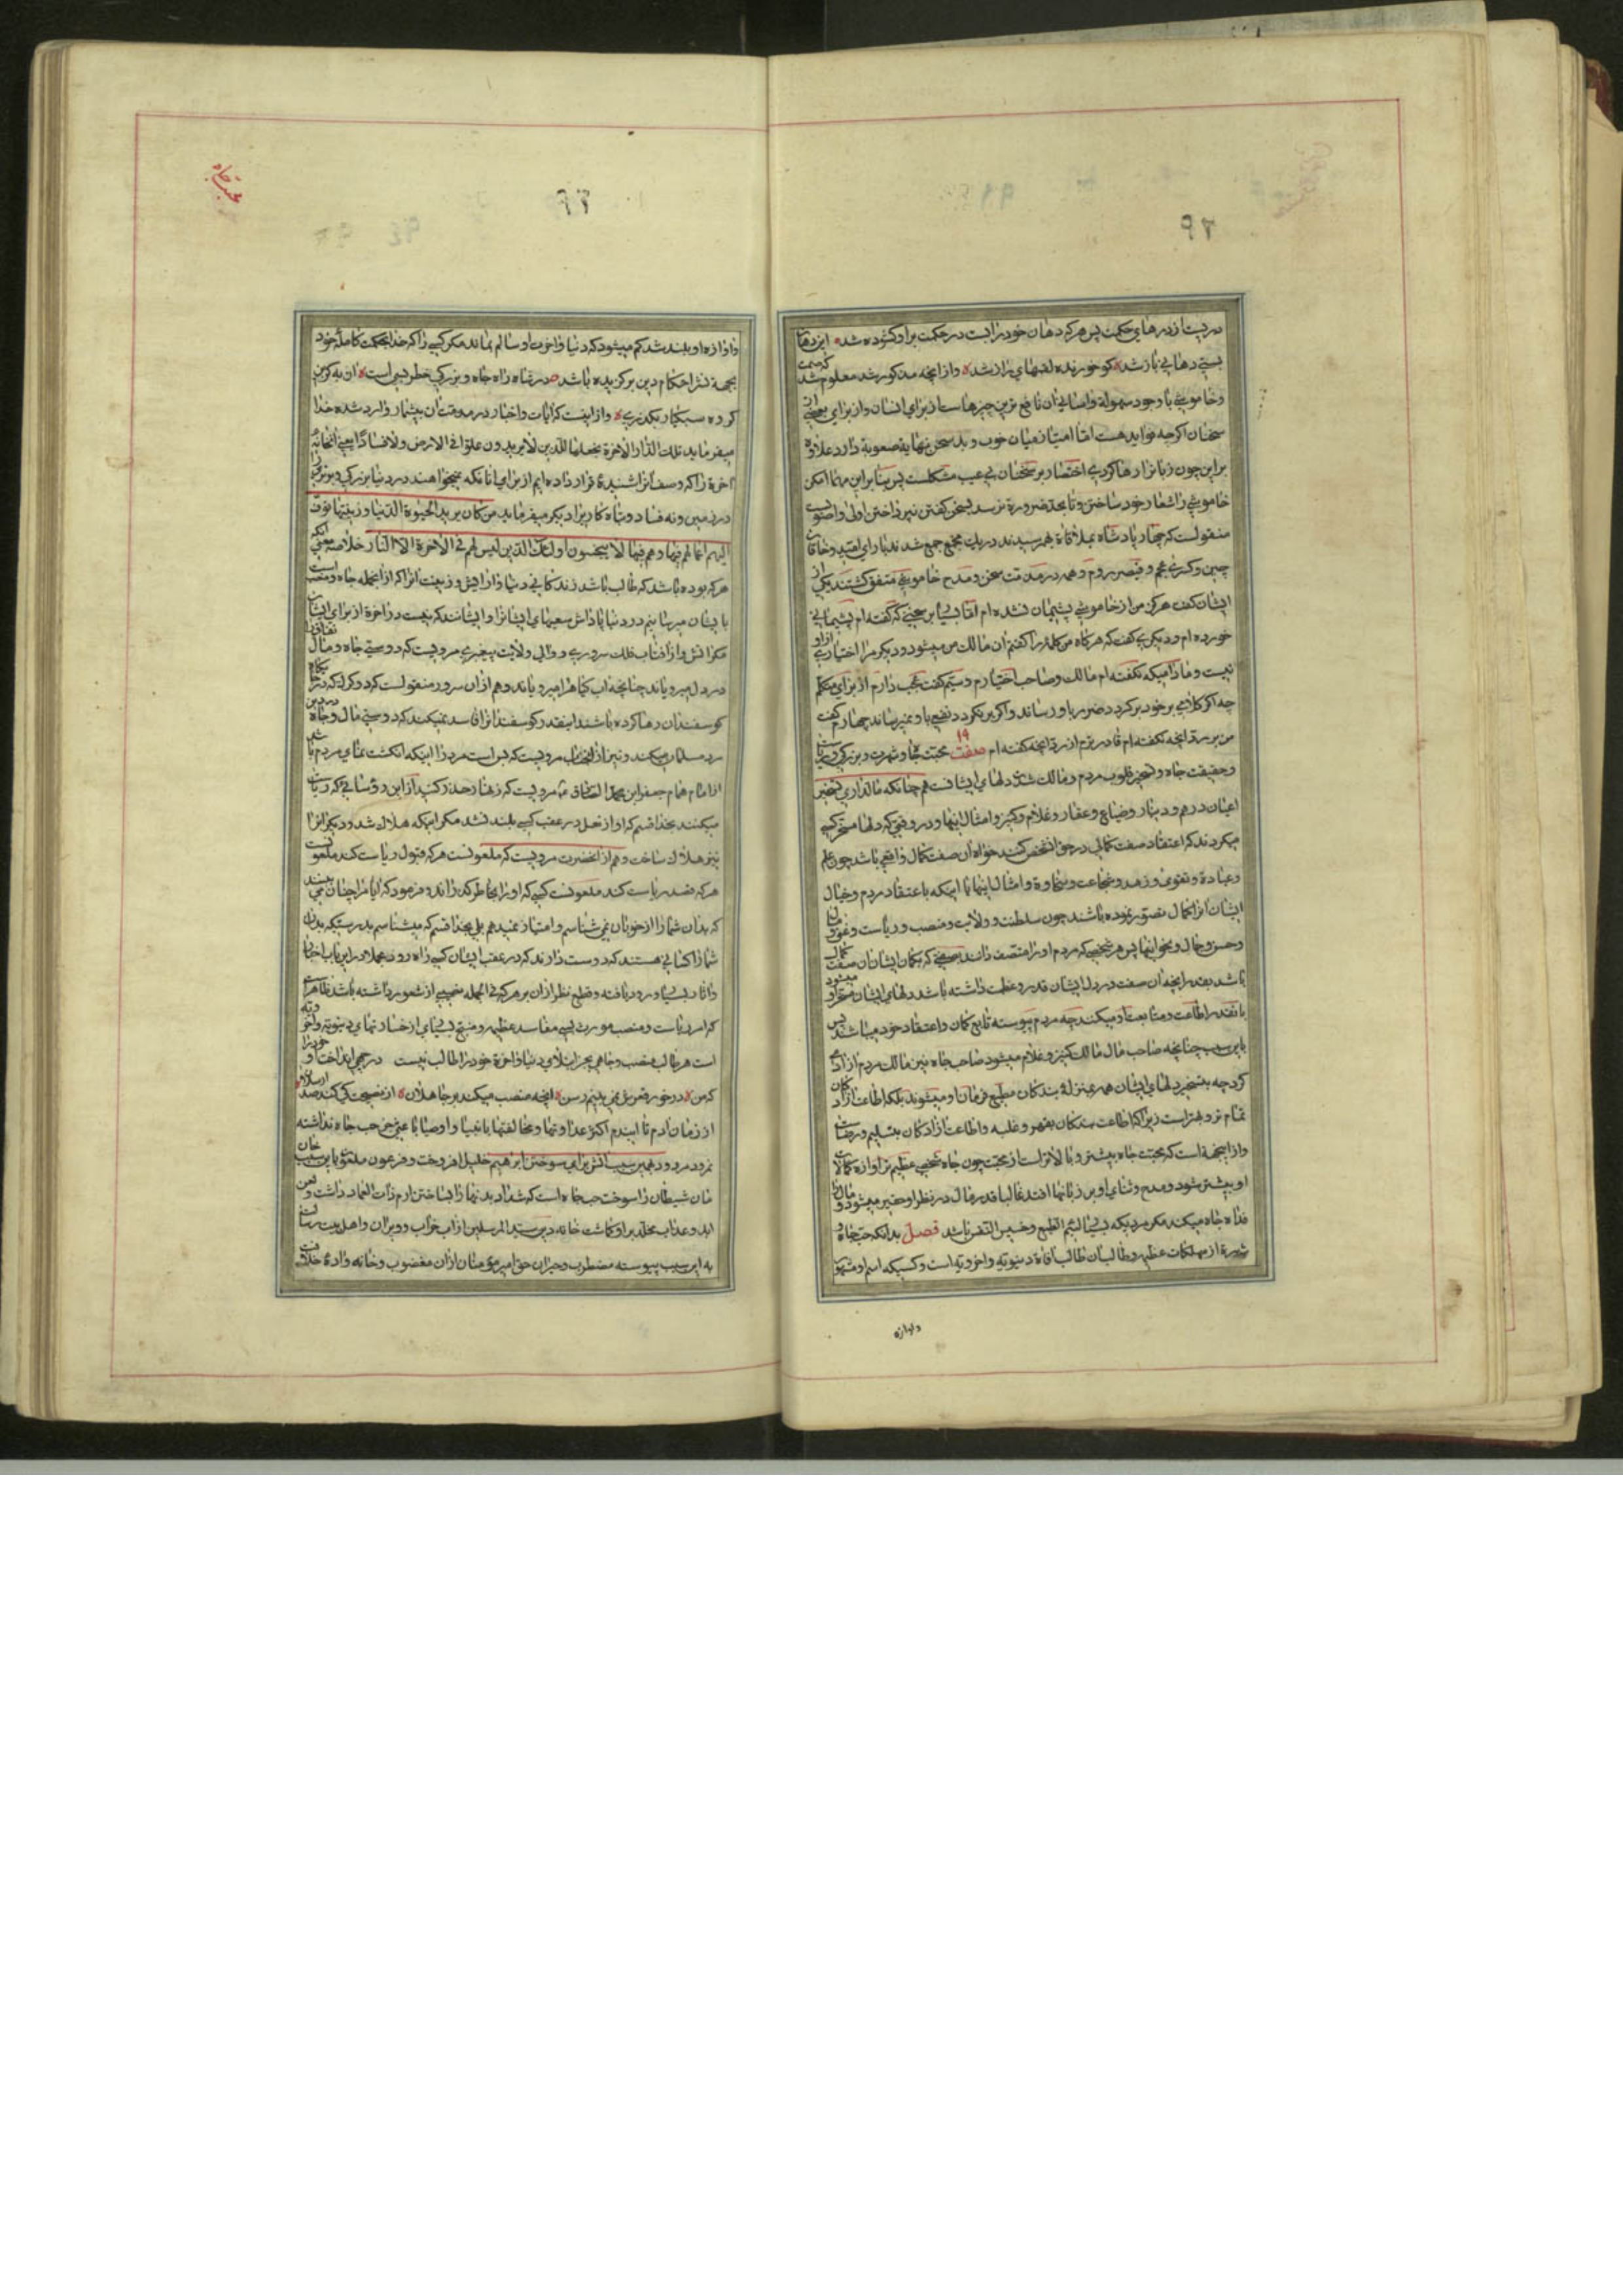 دریست از درهای حکمت پس هرکه دهان خود را بست در حکمت بر او گشوده شد این دهان
بستی دهانی باز شد کو خورنده لقمهای راز شد و از آنچه مذکور شد معلوم شد که صمت
و خاموشی با وجود سهولة و آسانی آن نافع ترین چیزهاست از برای انسان و از برای بعضی از
سخنان اگرچه فواید هست امّا امتیاز میان خوب و بد سخن نهایة صعوبة دارد علاوه
بر این چون زبان را رها کردی اختصار بر سخنان بی عیب مشکلست پس بنابراین مهما امکن
خاموشی را شعار خود ساختن و تا بحد ضرورة نرسد بسخن گفتن نپرداختن اولی و اصوبست
منقولست که چهار پادشاه بملاقاة بهم رسیدند در یک مجمع جمع شدند رای هند و خاقان
چین و کسری عجم و قیصر روم و همه در مذمت سخن و مدح خاموشی متفق گشتند یکی از
ایشان گفت هرگز من از خاموشی پشیمان نشده ام امّا بسیا بر سخنی که گفته ام پشیمانی
خورده ام و دیگری گفت که هرگاه من کلمه را گفتم آن مالک من میشود و دیگر مرا اختیاری از او
نیست و مادامیکه نگفته ام مالک و صاحب اختیارم و سیّم گفت عجب دارم از برای متکلم
چه اگر کلامی بر خود برگردد ضرر باو رساند و اگر برنگردد نفعی باو نمیرساند چهارم گفت
من بر رد آنچه نگفته ام قادرترم از رد آنچه گفته ام صفت ۱۹ محبّت جاه و شهرت و بزرگی و ریاست
و حقیقت جاه تسخیر قلوب مردم و مالک شدن دلهای ایشانست هم چنانکه مالداری تسخیر
اعیان درهم و دینار و ضیاع و عقار و غلام و کنیز و امثال اینها و در وقتی که دلها مسخّر کسی
میگردند که اعتقاد صفت کمالی در حق آنشخص کنند خواه آن صفت کمال واقعی باشد چون علم
و عبادة و تقوی و زهد و شجاعت و سخاوة و امثال اینها یا اینکه باعتقاد مردم و خیال
ایشان آنرا کمال تصوّر نموده باشند چون سلطنت و ولایت و منصب و ریاست و غنی و مال
و حسن و جمال و نحو اینها پس هر شخصی که مردم او را متصف دانند بصفتی که بگمان ایشان آن صفت کمال
باشد بقدر آنچه آن صفت در دل ایشان قدر و عظمت داشته باشد دلهای ایشان مسخر او میشود
بانقدر اطاعت و متابعت او میکنند چه مردم پیوسته تابع گمان و اعتقاد خود میباشند پس
باین سبب چنانچه صاحب مال مالک کنیز و غلام میشود صاحب جاه نیز مالک مردم آزادی
گردد چه بتسخیر دلهای ایشان همه بمنزلهٔ بندگان مطیع فرمان او میشوند بلکه اطاعت آزادگان
تمام تر و بهتر است زیرا که اطاعت بندگان بقهر و غلبه و اطاعت آزادگان بتسلیم و رضاست
و از اینجهة است که محبّت جاه بیشتر و بالاتر است از محبت چون جاه شخصی عظیم تر آوازه کمالات
او بیشتر شود و مدح و ثنای او بر زبانها افتد غالبا قدر مال در نظر او حقیر میشود و مال را
فداه جاه میکند مگر مردیکه بسیا لئیم الطبع و خسیس النفس باشد فصل بدانکه حبّ جاه و
شهرة از مهلکات عظیمه و طالب آن طالب آفاة دنیویّه و اخرویّه است و کسیکه اسم او مشهور
و آوازه
محبّت جاه
و آوازه او بلند شد کم میشود که دنیا و آخرت او سالم بماند مگر کسی را که خدا بحکمت کامله خود
بجهة نشر احکام دین برگزیده باشد در رفتاه زاه جاه و بزرگی خطر بسی است آن به کزین
گروه سبکبار بگذری و از اینست که آیات و اخبار در مذمت آن بیشمار وارد شده خدا
میفرماید تلک الدّار الآخرة نجعلها للّذین لا یریدون علوّا فی الارض ولا فسادًا یعنی آنخانهٔ
آخرة را که وصف آنرا شنیدهٔ قرار داده ایم از برای آنانکه نمیخواهند در دنیا بزرگی و برتری را
در زمین و نه فساد و تباه کاریرا و دیگر میفرماید من کان یرید الحیوة الدّنیا و زینتها نوفّ
الیهم اعمالهم فیها و هم فیها لا یبخسون اولئک الّذین لیس لهم فی الآخرة الّا النّار خلاصه معنی آنکه
هرکه بوده باشد که طالب باشد زندگانی دنیا و آرایش و زینت آنرا که از آنجمله جاه و منصب است
بایشان میرسانیم در دنیا پاداش سعیهای ایشانرا و ایشانند که نیست در آخرة از برای ایشان
مگر آتش و از آفتاب فلک سروری و والی ولایت پیغبری مرویست که دوستی جاه و مال نفاق را
در دل میرویاند چنانچه آب گیاه را میرویاند و هم از آن سرور منقولست که دو گرگ که در جایگاه
گوسفندان رها کرده باشند اینقدر گوسفندان را فاسد نمیکند که دوستی مال و جاه در دین
مرد مسلمان میکند و نیز از آنجناب مرویست که بس است مرد را از شر اینکه انگشت نمای مردم باشد
از امام همام جعفر ابن محمّد الصّادق مرویست که زنهار حذر کنید از این رؤسائی که ریاست
میکنند بخدا قسم که آواز نعل در عقب کسی بلند نشد مگر اینکه هلاک شد و دیگران را
نیز هلاک ساخت و هم از آنحضرت مرویست که ملعونست هرکه قبول ریاست کند ملعونست
هرکه قصد ریاست کند ملعونست کسی که او را بخاطر گذراند و فرمود که آیا مرا چنان می بینید
که بدان شما را از خوبان نمی شناسم و امتیاز نمیدهم بلی بخدا قسم که میشناسم بدرستیکه بدان
شما را کسانی هستند که دوست دارند که در عقب ایشان کسی راه رود و بعلاوه در این باب اخبار
و آثار بسیا ورود یافته و قطع نظر از آن هرکه فی الجمله نصیبی از شعور داشته باشد ظاهر است
که امر ریاست و منصب مورث بسی مفاسد عظیمه و منتج بسیای از خسارتهای دنیویّه و اخرویّه
است هر طالب منصب و جاهی بجز ابتلای دنیا و آخرة خود را طالب نیست
از زمان آدم تا ایندم اکثر عداوتها و مخالفتها با انبیا و اوصیا باعثی جز حب جاه نداشته
نمرود مردود بهمین سبب آتش برای سوختن ابرهیم خلیل افروخت و فرعون ملعون باین سبب خان
مان شیطان را سوخت حب جاه است که شداد بدنهاد را بساختن ارم ذات العماد داشت و لعن
ابد و عذاب مخلّد بر او گماشت خانه دین سیّد المرسلین از آن خراب و ویران و اهل بیت رسالت
به این سبب پیوسته مضطرب و حیران حق امیر مؤمنان از آن مغصوب و خانه واده خلافت